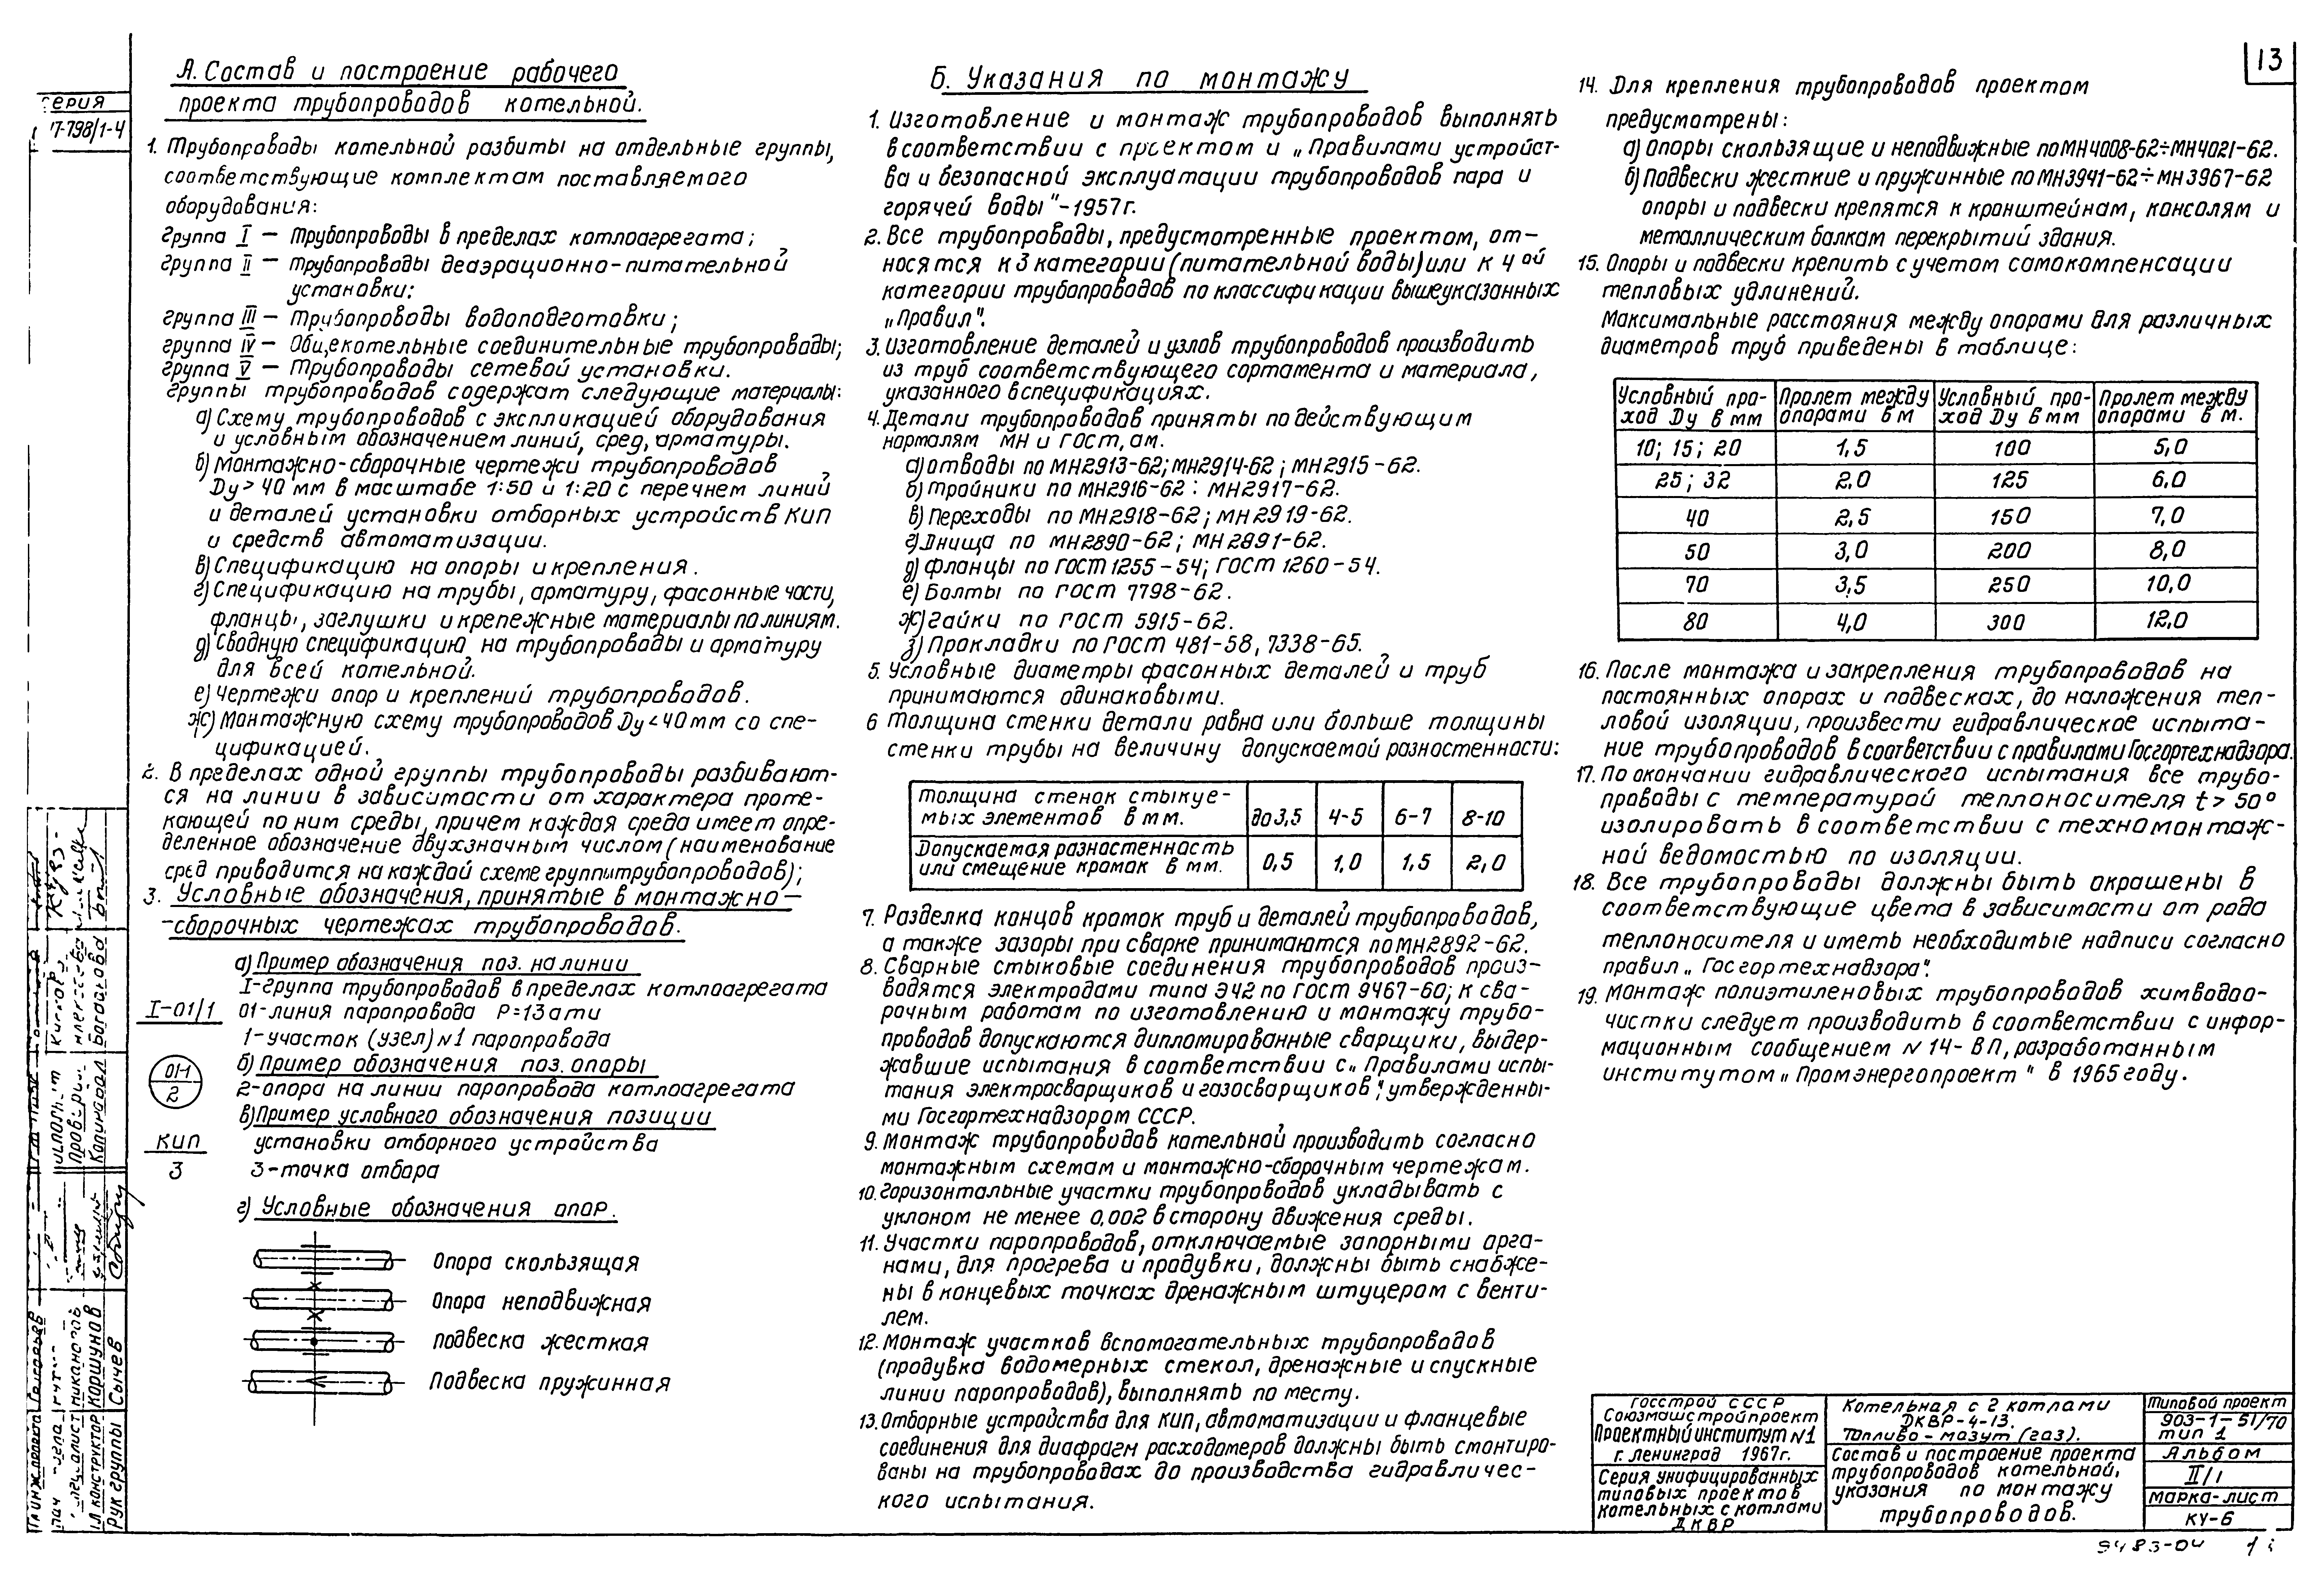 13
А. Состав и построение рабочего
проекта трубопроводов котельной.
1. Трубопроводы котельной разбиты на отдельные группы,
соответствующие комплектам поставляемого
оборудования:
группа I — Трубопроводы в пределах котлоагрегата;
группа II — Трубопроводы деаэрационно-питательной
установки;
группа III — Трубопроводы водоподготовки;
группа IV — Общекотельные соединительные трубопроводы;
группа V — Трубопроводы сетевой установки.
Группы трубопроводов содержат следующие материалы:
а) Схему трубопроводов с экспликацией оборудования
и условным обозначением линий, сред, арматуры.
б) Монтажно-сборочные чертежи трубопроводов
Ду > 40 мм в масштабе 1:50 и 1:20 с перечнем линий
и деталей установки отборных устройств КИП
и средств автоматизации.
в) Спецификацию на опоры и крепления.
г) Спецификацию на трубы, арматуру, фасонные части,
фланцы, заглушки и крепежные материалы по линиям.
д) Сводную спецификацию на трубопроводы и арматуру
для всей котельной.
е) Чертежи опор и креплений трубопроводов.
ж) Монтажную схему трубопроводов Ду < 40 мм со спе-
цификацией.
2. В пределах одной группы трубопроводы разбивают-
ся на линии в зависимости от характера проте-
кающей по ним среды, причем каждая среда имеет опре-
деленное обозначение двухзначным числом (наименование
сред приводится на каждой схеме группы трубопроводов);
3. Условные обозначения, принятые в монтажно—
-сборочных чертежах трубопроводов.
а) Пример обозначения поз. на линии
I-группа трубопроводов в пределах котлоагрегата
I-01/1 01-линия паропровода Р=13 ати
1-участок (узел) N1 паропровода
б) Пример обозначения поз. опоры
01-1
2
2-опора на линии паропровода котлоагрегата
в) Пример условного обозначения позиции
КИП
3
установки отборного устройства
3-точка отбора
г) Условные обозначения опор.
Опора скользящая
Опора неподвижная
Подвеска жесткая
Подвеска пружинная
Б. Указания по монтажу
1. Изготовление и монтаж трубопроводов выполнять
в соответствии с проектом и „Правилами устройст-
ва и безопасной эксплуатации трубопроводов пара и
горячей воды"-1957г.
2. Все трубопроводы, предусмотренные проектом, от-
носятся к 3 категории (питательной воды) или к 4ой
категории трубопроводов по классификации вышеуказанных
„Правил".
3. Изготовление деталей и узлов трубопроводов производить
из труб соответствующего сортамента и материала,
указанного в спецификациях.
4. Детали трубопроводов приняты по действующим
нормалям МН и ГОСТ, ам.
а) отводы по МН2913-62; МН2914-62; МН2915-62.
б) тройники по МН2916-62: МН2917-62.
в) Переходы по МН2918-62; МН2919-62.
г) Днища по МН2890-62; МН2891-62.
д) фланцы по ГОСТ 1255-54; ГОСТ 1260-54.
е) Болты по ГОСТ 7798-62.
ж) Гайки по ГОСТ 5915-62.
з) Прокладки по ГОСТ 481-58, 7338-65.
5. Условные диаметры фасонных деталей и труб
принимаются одинаковыми.
6 Толщина стенки детали равна или больше толщины
стенки трубы на величину допускаемой разностенности:
Толщина стенок стыкуе-
мых элементов в мм. до 3,5 4-5 6-7 8-10
Допускаемая разностенность
или смещение кромок в мм. 0,5 1,0 1,5 2,0
7. Разделка концов кромок труб и деталей трубопроводов,
а также зазоры при сварке принимаются по МН2892-62.
8. Сварные стыковые соединения трубопроводов произ-
водятся электродами типа Э42 по ГОСТ 9467-60; к сва-
рочным работам по изготовлению и монтажу трубо-
проводов допускаются дипломированные сварщики, выдер-
жавшие испытания в соответствии с „Правилами испы-
тания электросварщиков и газосварщиков", утвержденны-
ми Госгортехнадзором СССР.
9. Монтаж трубопроводов котельной производить согласно
монтажным схемам и монтажно-сборочным чертежам.
10. Горизонтальные участки трубопроводов укладывать с
уклоном не менее 0,002 в сторону движения среды.
11. Участки паропроводов, отключаемые запорными орга-
нами, для прогрева и продувки, должны быть снабже-
ны в концевых точках дренажным штуцером с венти-
лем.
12. Монтаж участков вспомогательных трубопроводов
(продувка водомерных стекол, дренажные и спускные
линии паропроводов), выполнять по месту.
13. Отборные устройства для КИП, автоматизации и фланцевые
соединения для диафрагм расходомеров должны быть смонтиро-
ваны на трубопроводах до производства гидравличес-
кого испытания.
14. Для крепления трубопроводов проектом
предусмотрены:
а) Опоры скользящие и неподвижные по МН4008-62÷МН4021-62.
б) Подвески жесткие и пружинные по МН3941-62÷МН3967-62
опоры и подвески крепятся к кронштейнам, консолям и
металлическим балкам перекрытий здания.
15. Опоры и подвески крепить с учетом самокомпенсации
тепловых удлинений.
Максимальные расстояния между опорами для различных
диаметров труб приведены в таблице:
Условный про-ход Ду в мм Пролет между опорами в м Условный про-ход Ду в мм Пролет между опорами в м.
10; 15; 20 1,5 100 5,0
25; 32 2.0 125 6,0
40 2,5 150 7,0
50 3,0 200 8,0
70 3,5 250 10,0
80 4,0 300 12,0
16. После монтажа и закрепления трубопроводов на
постоянных опорах и подвесках, до наложения теп-
ловой изоляции, произвести гидравлическое испыта-
ние трубопроводов в соответствии с правилами Госгортехнадзора.
17. По окончании гидравлического испытания все трубо-
проводы с температурой теплоносителя t > 50°
изолировать в соответствии с техномонтаж-
ной ведомостью по изоляции.
18. Все трубопроводы должны быть окрашены в
соответствующие цвета в зависимости от рода
теплоносителя и иметь необходимые надписи согласно
правил „Госгортехнадзора".
19. Монтаж полиэтиленовых трубопроводов химводоо-
чистки следует производить в соответствии с инфор-
мационным сообщением N 14-ВП, разработанным
институтом „Промэнергопроект" в 1965 году.
Госстрой СССР
Союзмашстройпроект
Проектный институт N1
г. Ленинград 1967г.
Серия унифицированных
типовых проектов
котельных с котлами
ДКВР
Котельная с 2 котлами
ДКВР-4-13.
Топливо-мазут (газ).
Состав и построение проекта
трубопроводов котельной,
указания по монтажу
трубопроводов.
Типовой проект
903-1-51/70
тип 1
Альбом
II/1
марка-лист
КУ-6
9483-04
ерия
7-798/1-4
Рук группы Сычев
Коршунов
Богданова